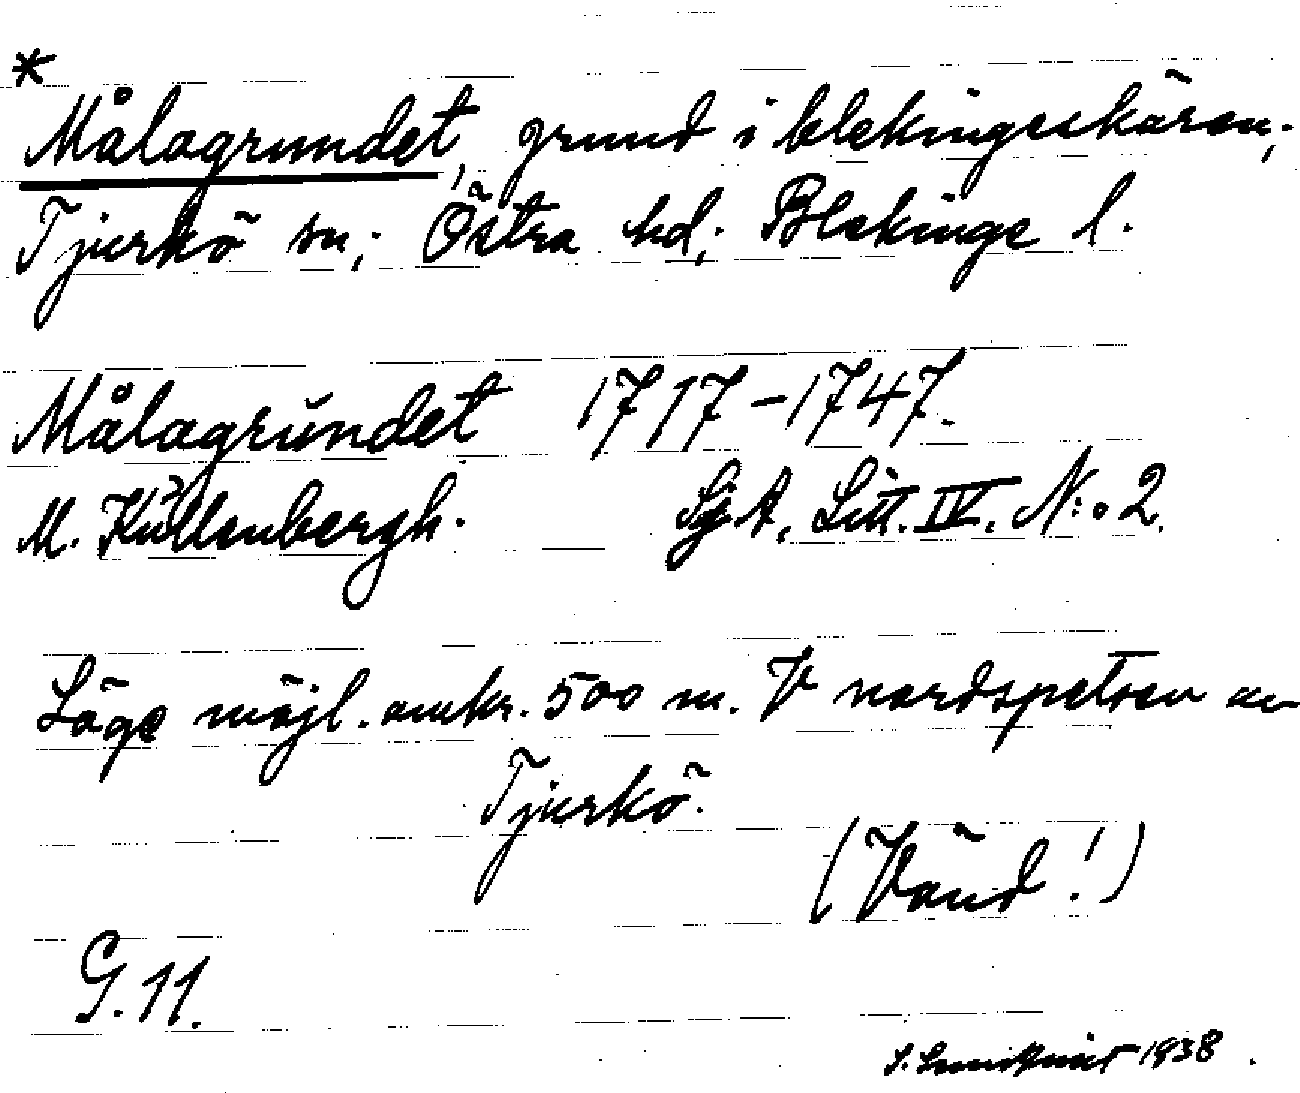 *
Målagrundet, grund i blekingeskären;
Tjurkö sn; Östra hd; Blekinge l.
Målagrŭndet 1717-1747.
M. Küllenbergh. Sj. A. Litt. IV. N:o 2.
Läge möjl. omkr. 500 m. V nordspetsen av
Tjurkö.
(Vänd!)
G. 11.
S. 1938